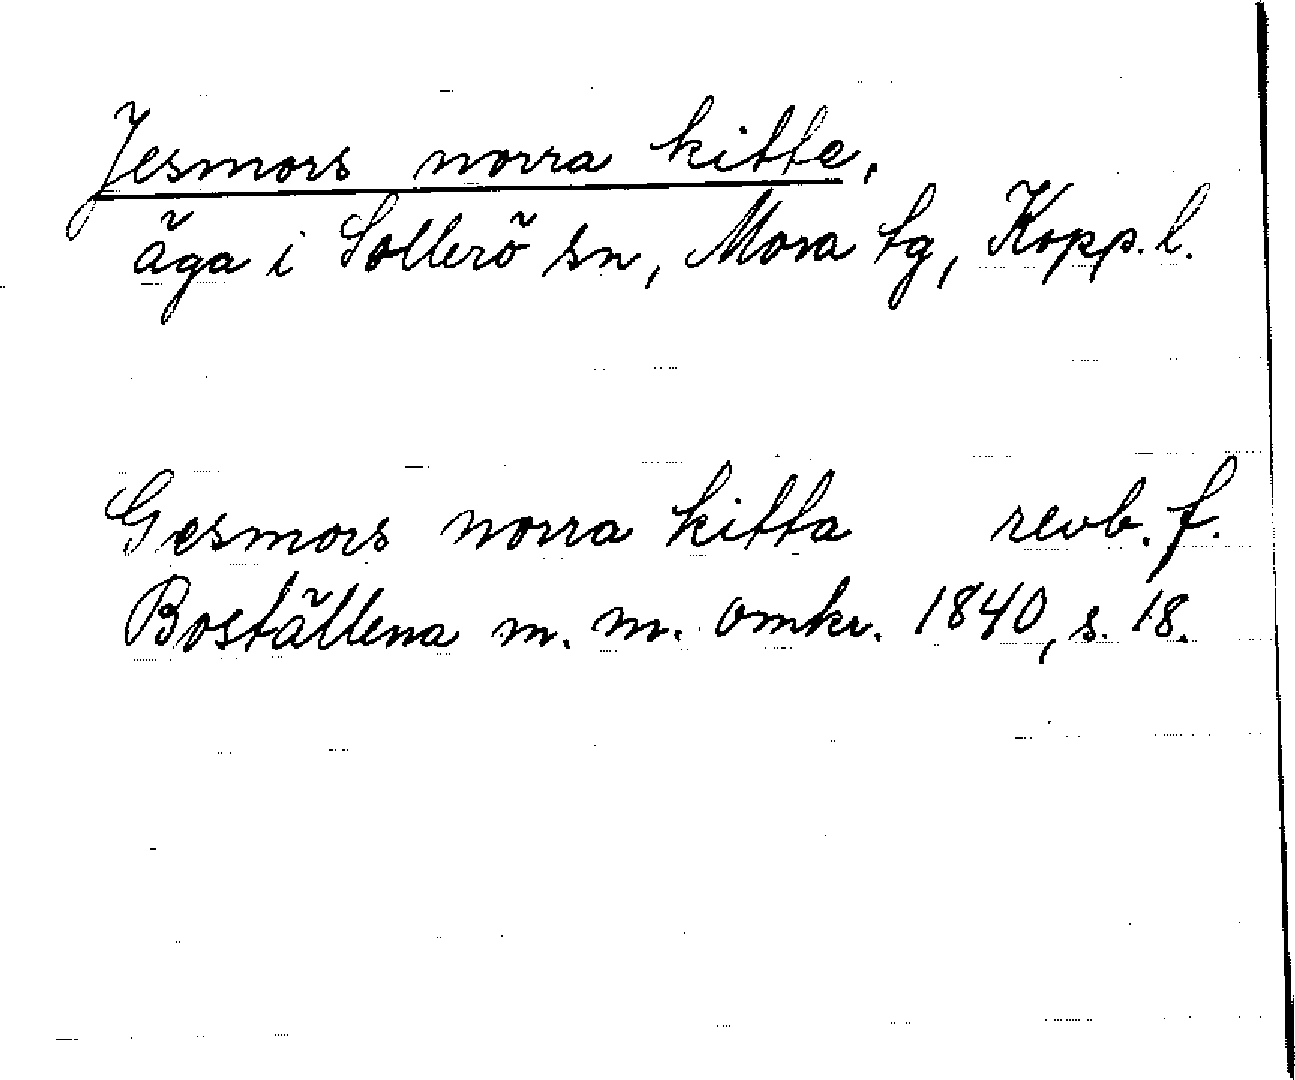 Jesmors norra kitte,
äga i Sollerö sn, Mora tg, Kopp. l.
Gesmors norra kitta revb. f.
Boställena m. m. omkr. 1840, s. 18.